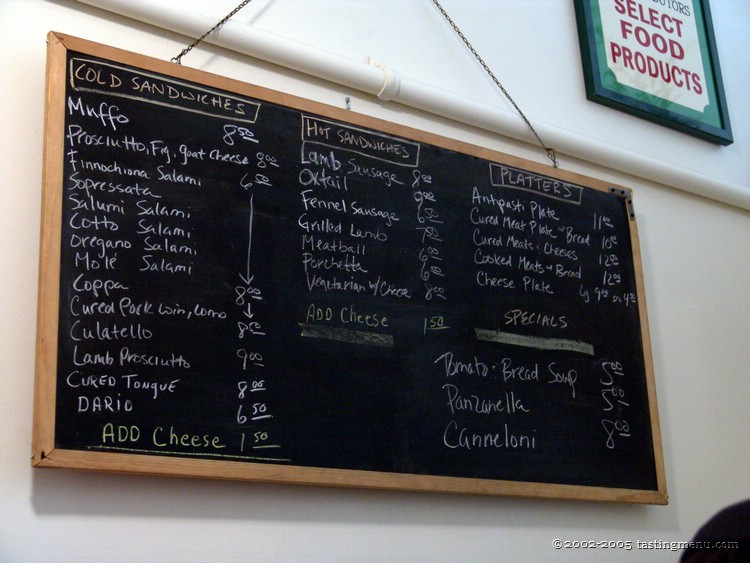 COLD SANDWICHES
Muffo 8.50
Prosciutto, Fig, goat Cheese 8.00
Finnochiona Salami 6.50
Sopressata
Salumi Salami
Cotto Salami
Oregano Salami
Mole Salami
Coppa 8.00
Cured Pork Loin, Lomo
Culatello 8.00
Lamb Prosciutto 9.00
CURED TONGUE 8.00
DARIO 6.50
ADD Cheese 1.50
HOT SANDWICHES
Lamb Sausage 8.00
Oxtail 9.00
Fennel Sausage 6.50
Grilled Lamb 7.50
Meatball 6.00
Porchetta 6.00
Vegetarian w/ Cheese 8.00
ADD Cheese 1.50
PLATTERS
Antipasti Plate 11.00
Cured Meat Plate w Bread 10.00
Cured Meats & Cheeses 12.00
Cooked Meats w Bread 12.00
Cheese Plate Lg 9.00 or 4.50
SPECIALS
Tomato & Bread Soup 5.00
Panzanella
Canneloni 8.00
SELECT
FOOD
PRODUCTS
©2002-2005 tastingmenu.com